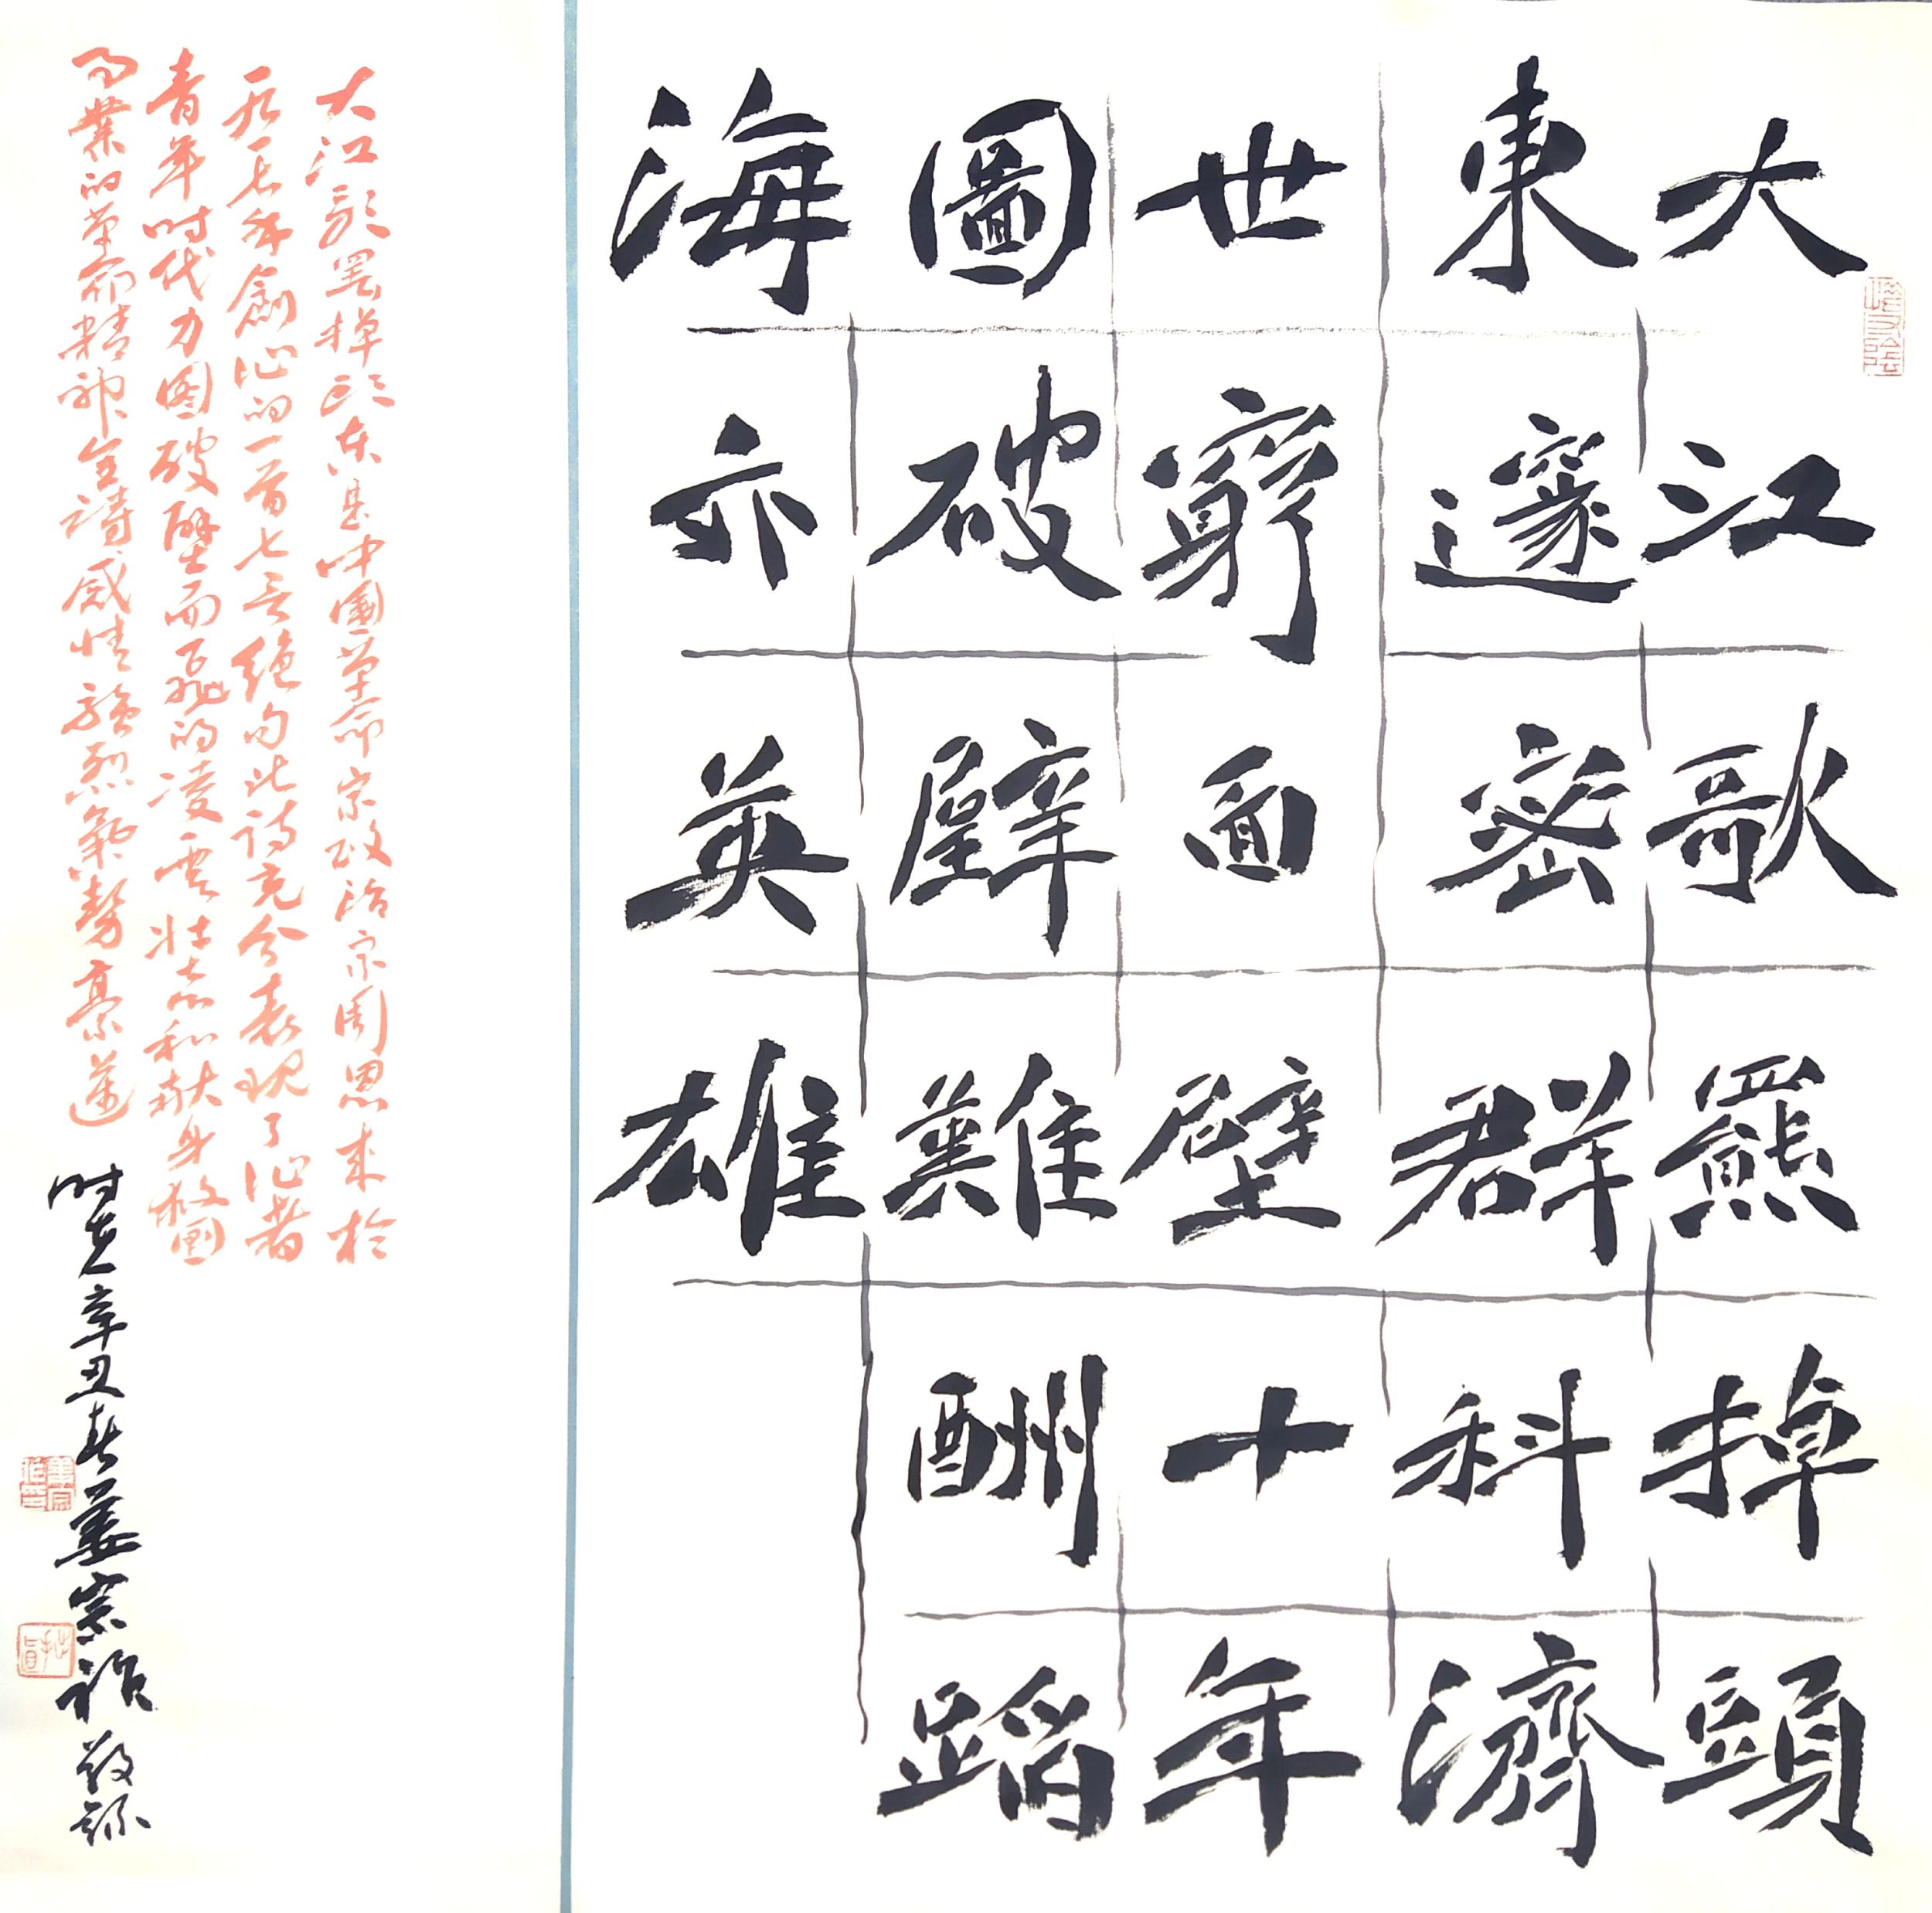 大江歌羆掉頭
東邃密群科濟
世窮面壁十年
圖破壁難酬蹈
海亦英雄
大江歌罢掉頭东是中國革命家政治家周恩来於
一九一七年創作的一首七言绝句此诗充分表现了作者
青年时代力图破壁而飛的凌雲壮志和献身救國
事業的革命精神全詩感情强烈氣勢豪邁
时在辛丑春宗祚敬録